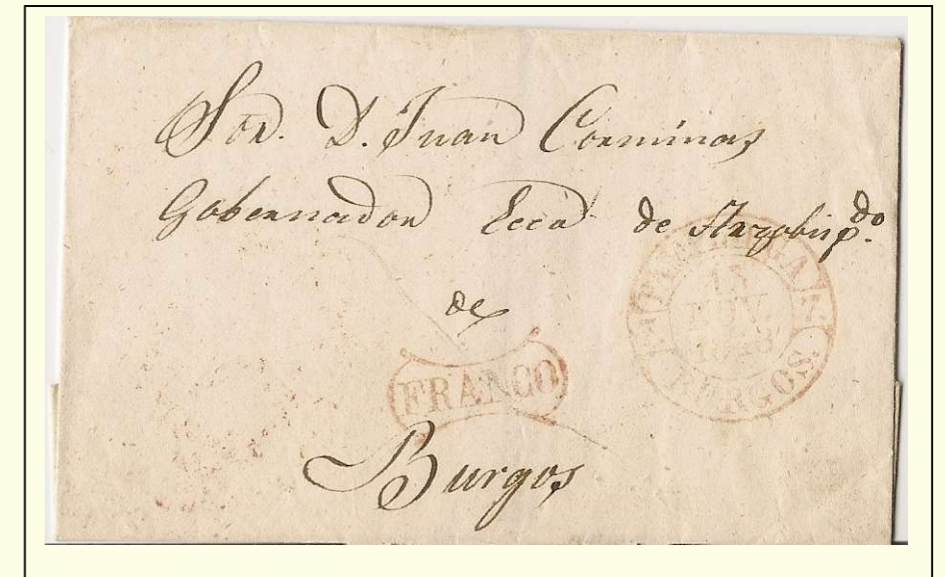 Sor. D. Juan Corminas
Gobernador Ecco de Arzobispdo.
de
FRANCO
Burgos
15
NOV.
1848
BURGOS.